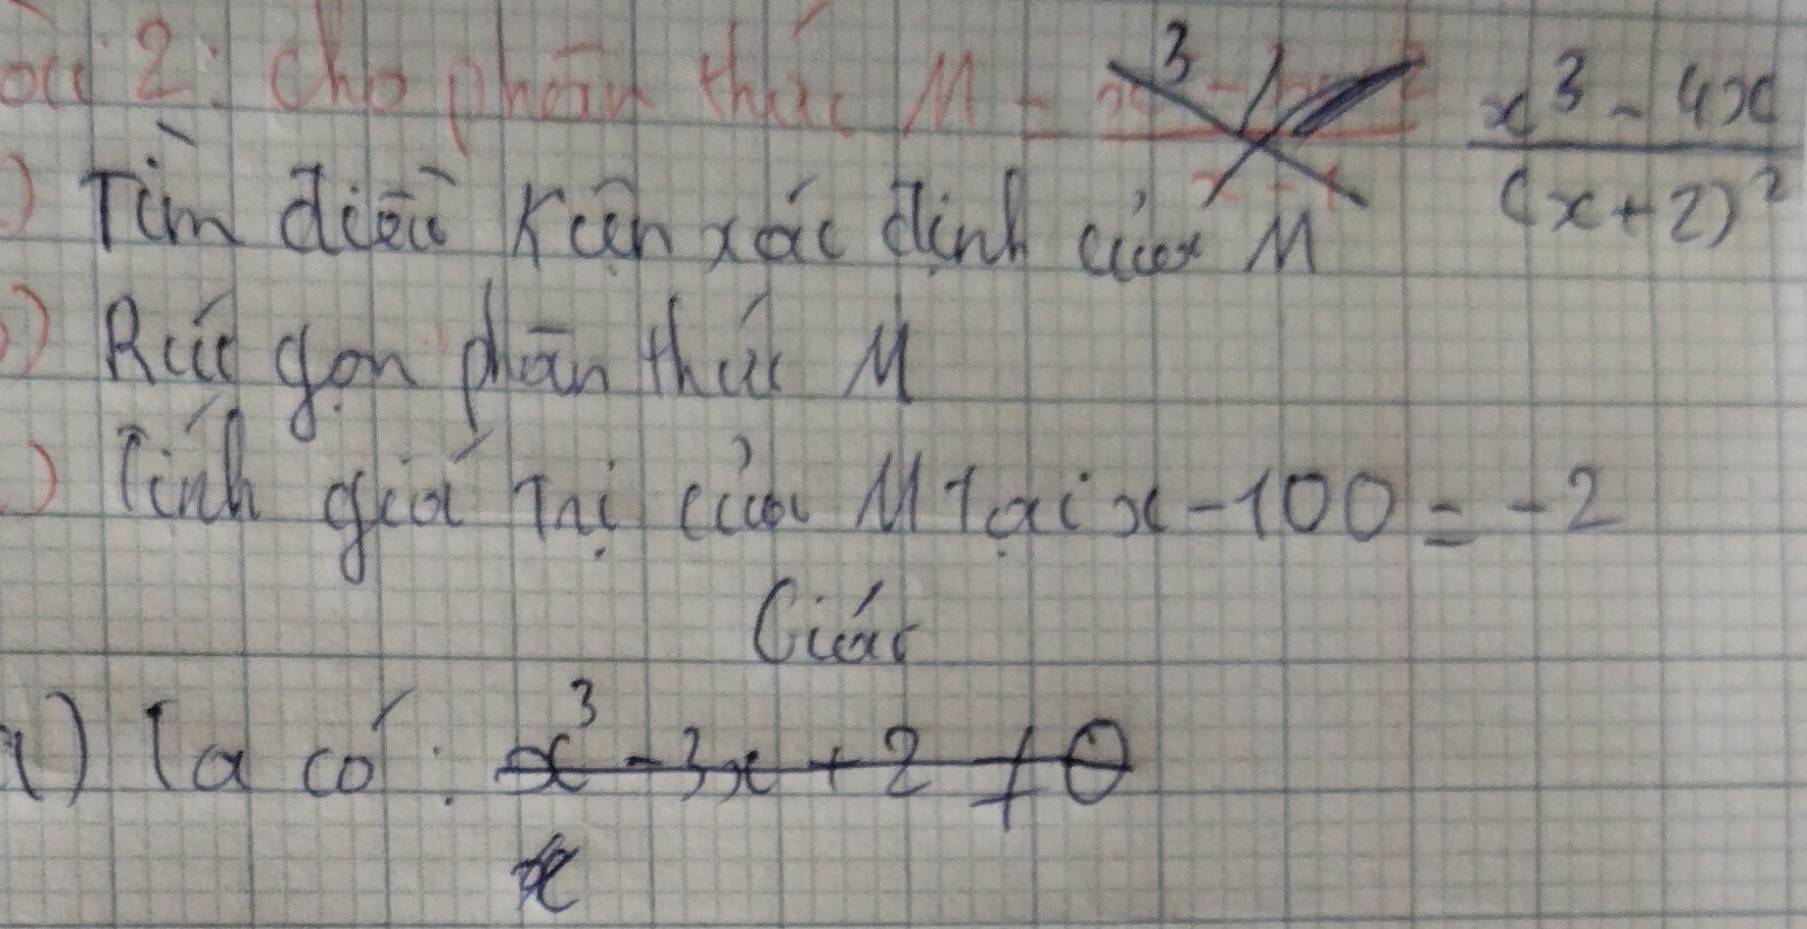 Bài 2: Cho phân thức M = x³ - 4x / (x+2)²
) Tìm điều Kiện xác định của M
) Rút gọn phân thức M
) Tính giá Trị của M Tại x - 100 = -2
Giải
a) Ta có: x³ - 3x + 2 ≠ 0
x